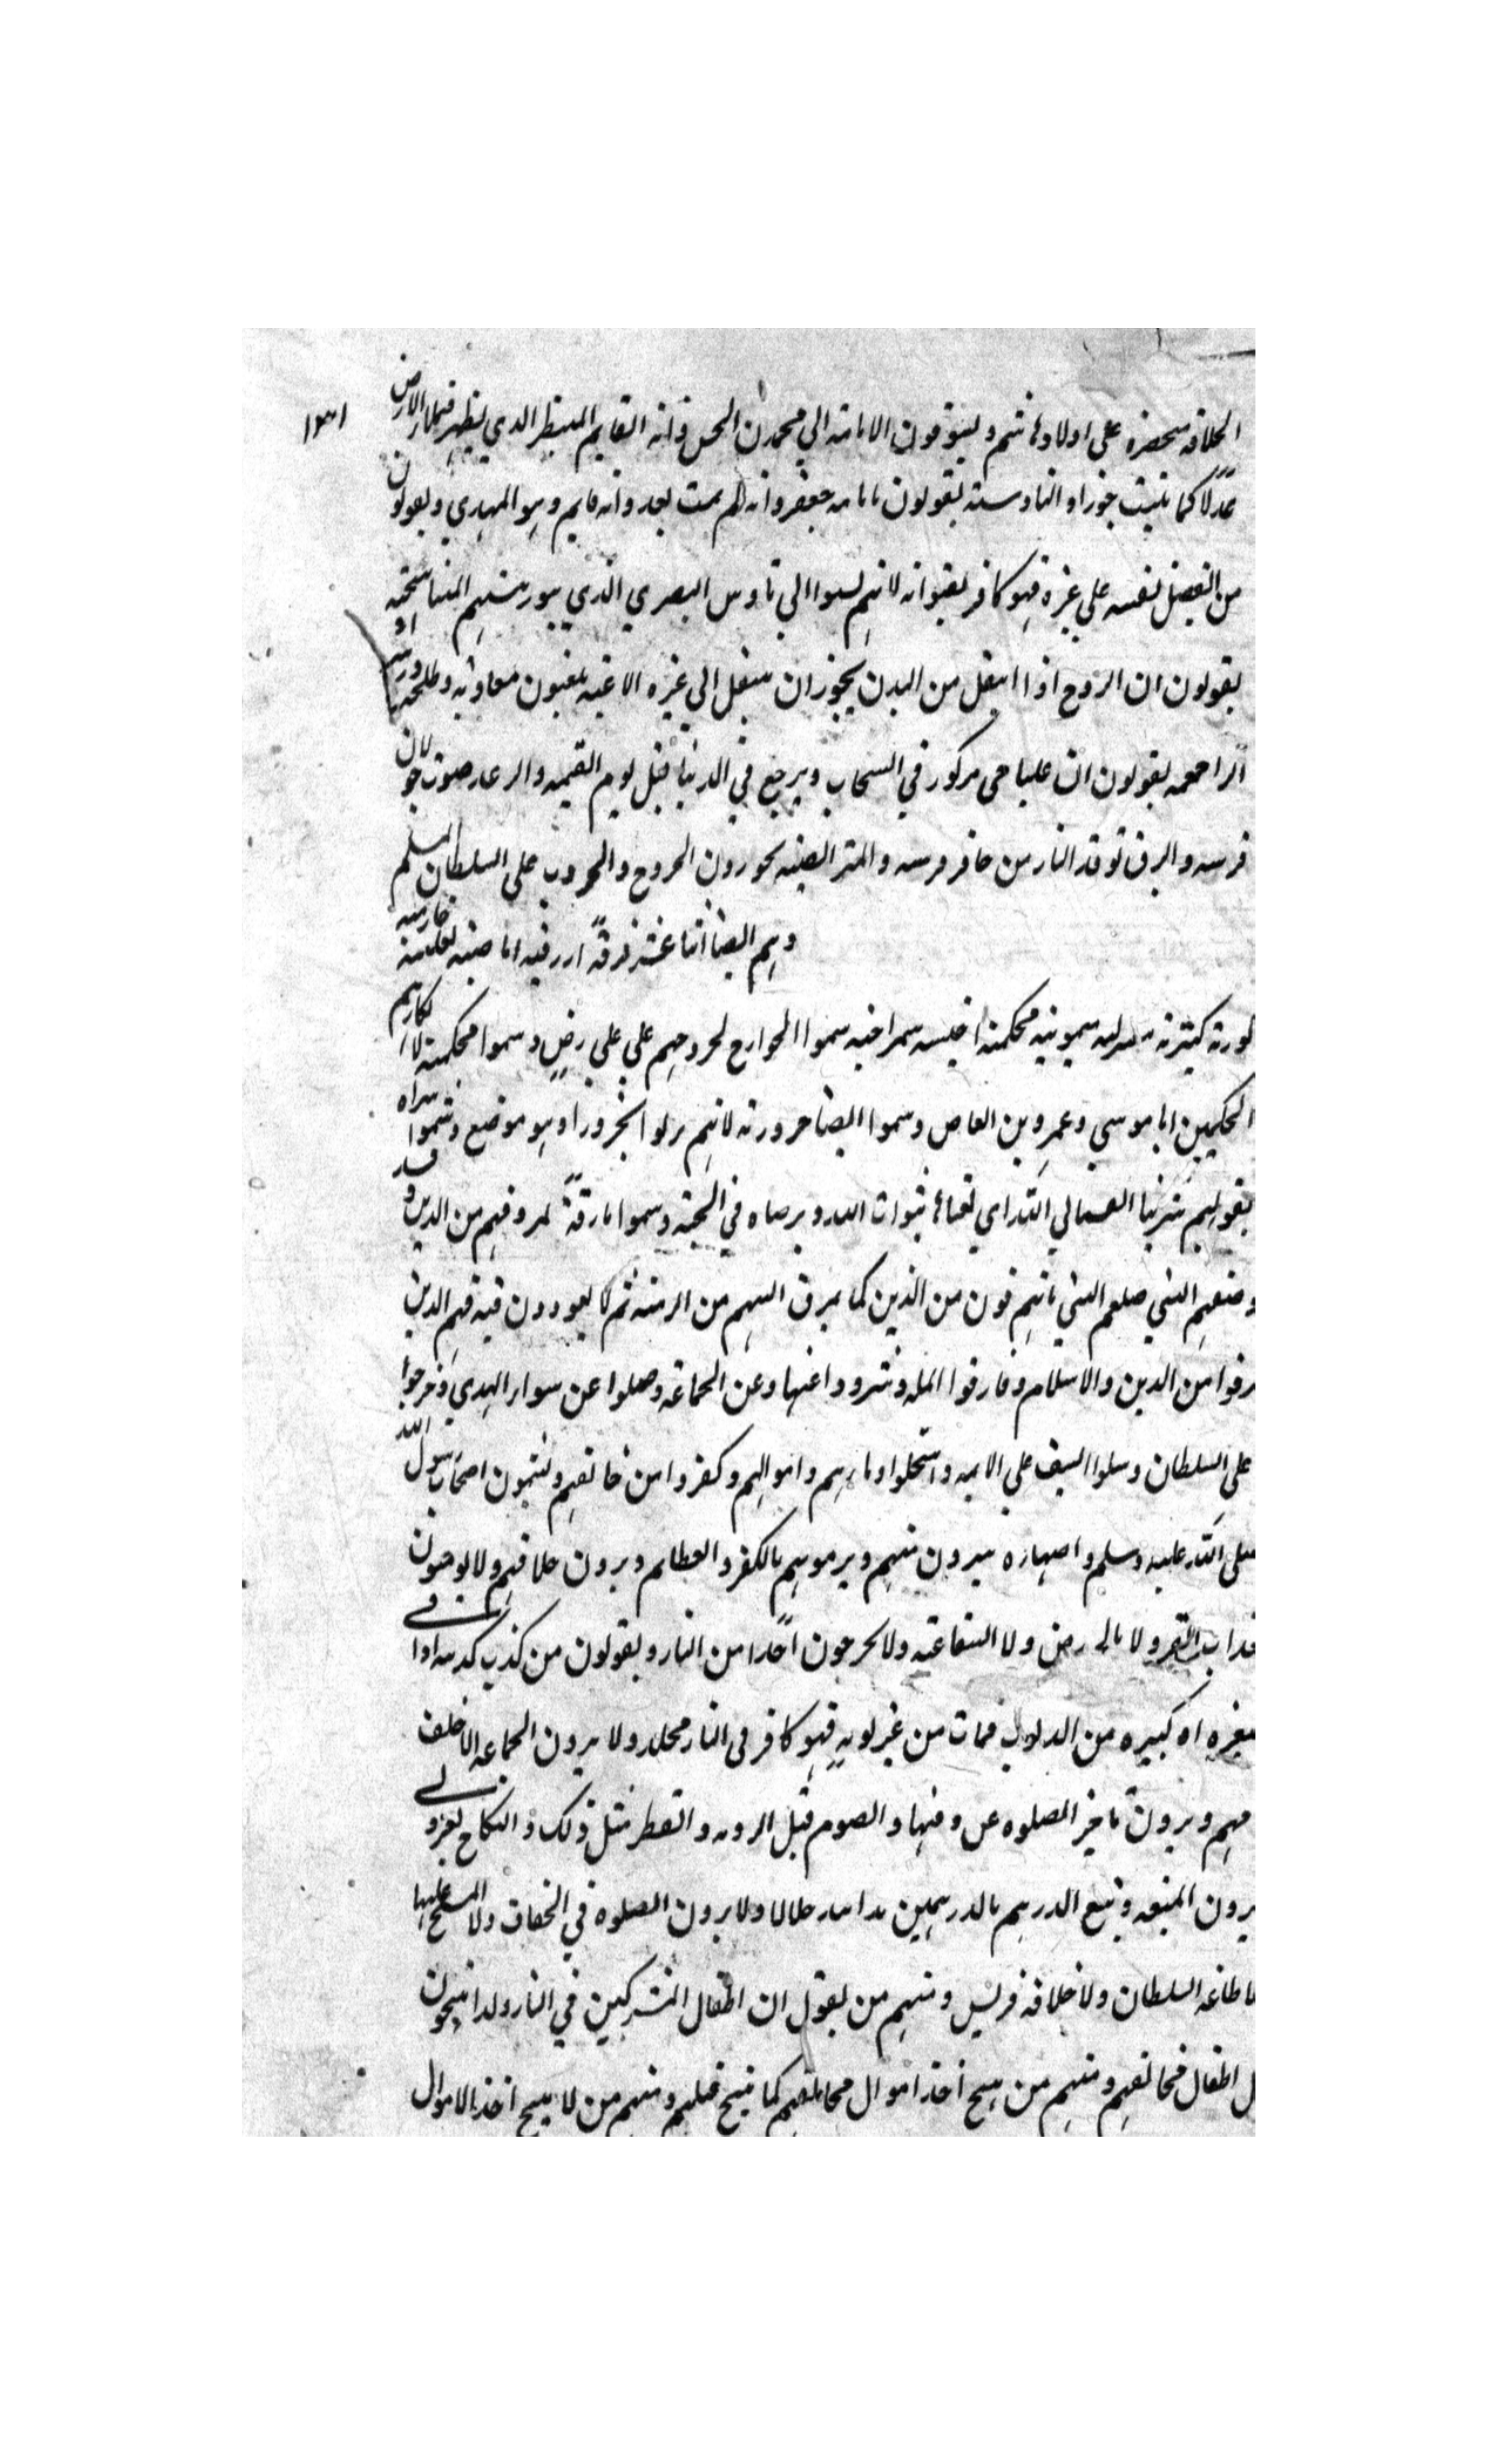 الخلافه منحصره على اولاد هاشم ويسوقون الامامة الي محمد بن الحسن وانه القايم المنتظر الذي يظهر فيملاء الارض
عدلا كما ملئت جورا و الناوسية يقولون بامامه جعفر وانه لم يمت بعد وانه قايم وهو المهدي ويقولون
من يفضل نفسه على غيره فهو كافر لانهم نسبوا الي ناوس البصري الذي هو رئيسهم المتناسخيه
يقولون ان الروح اذا انتقل من البدن يجوز ان ينتقل الي غيره اللاعنيه يلعنون معاويه وطلحه و
الراجعيه يقولون ان عليا حي مركوز في السحاب ويرجع في الدنيا قبل يوم القيمه والرعد صوت جولان
فرسه والبرق توقد النار من حافر فرسه والمتربصيه يجوزون الخروج والحروب على السلطان المسلم
خارجيه
وهم ايضا اثنا عشر فرقة ازرقيه اباضيه ثعلبيه
كوزية كنزية سمونيه محكمة اخنسيه شمراخيه سموا الخوارج لخروجهم على علي رض وسموا محكمة لانكارهم
الحكمين ابا موسي وعمرو بن العاص وسموا ايضا حرورية لانهم نزلوا بحرورا وهو موضع وسموا شراه
بقولهم شرينا انفسنا في الله اي بعناها بثواب الله وبرضاه في الجنة وسموا مارقة لمروقهم من الدين وقد
وصفهم النبي صلعم بانهم يمرقون من الدين كما يمرق السهم من الرمية ثم لا يعودون فيه فهم الذين
مرقوا من الدين والاسلام وفارقوا المله وشردوا عنها وعن الجماعة وضلوا عن سواء الهدي وخرجوا
على السلطان وسلوا السيف على الايمه واستحلوا دماءهم واموالهم وكفروا من خالفهم ويشتمون اصحاب رسول الله
صلى الله عليه وسلم واصهاره ويتبرون منهم ويرمونهم بالكفر والعظائم ويرون خلافهم ولا يومنون
عذاب القبر ولا بالحوض ولا الشفاعة ولا يخرجون احدا من النار ويقولون من كذب كذبه او اتى
صغيره او كبيره من الذنوب فمات من غير توبه فهو كافر في النار مخلد ولا يرون الجماعه الا خلف
امامهم ويرون تاخير الصلوه عن وقتها والصوم قبل الرويه والفطر مثل ذلك والنكاح بغير ولي
ويرون المتعه وبيع الدرهم بالدرهمين يدا بيد حلالا ولا يرون الصلوه في الخفاف ولا المسح عليها
ولا طاعه السلطان ولا خلافه قريش ومنهم من يقول ان اطفال المشركين في النار ولذا يبيحون
قتل اطفال مخالفهم ومنهم من يبيح اخذ اموال مخالفهم كما يبيح قتلهم ومنهم من لا يبيح اخذ الاموال